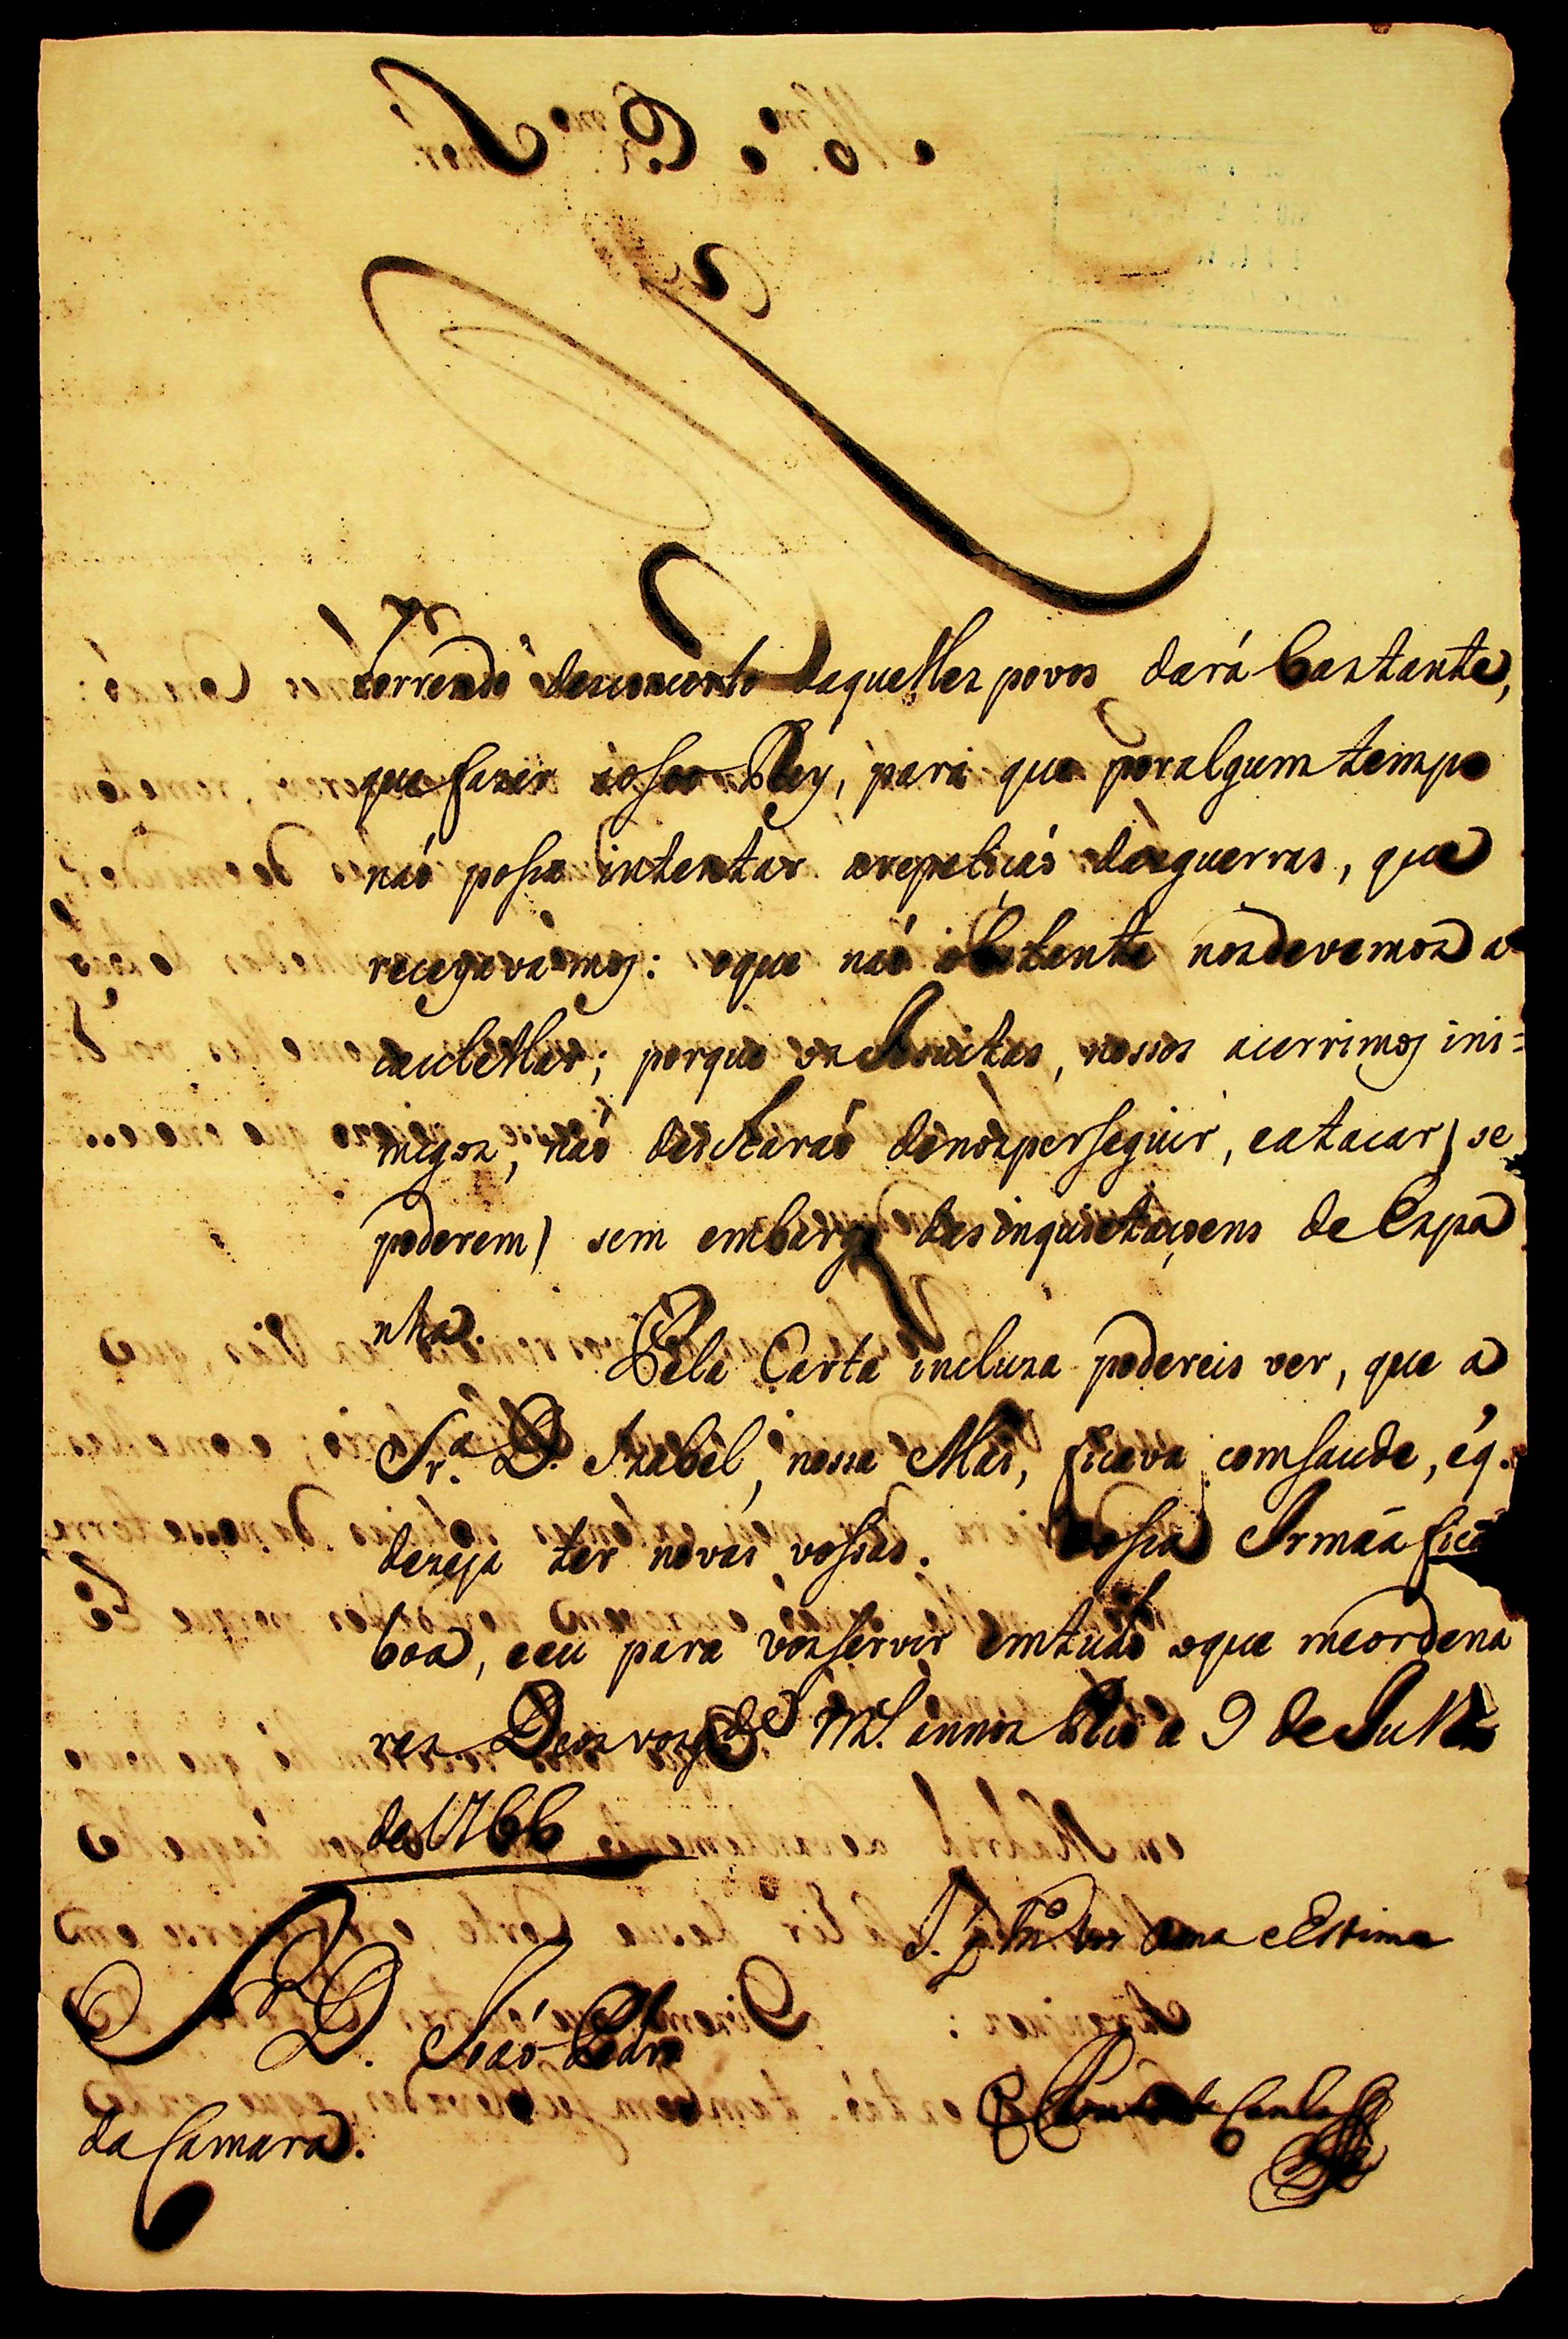 correndo desconcerto daquelles povos dará bastante,
que fazer ao seo Rey, para que por algum tempo
naó possa intentar arepetiçaó dasguerras, que
receyavamos: oque naó obstante nosdevemos a
cautellar; porque os Jesuitas, nossos acerrimos ini=
migos, naó deixaraó denosperseguir, eatacar (se
poderem) sem embargo dasinquietaçoens de Espa
nha. Pela Carta incluza podereis ver, que a
Sr.ª D. Izabel, nossa Mai, ficava comsaude, éq.
dezeja ter novas vossas. Vossa Irmãa fica
boa, eeu para vosservir emtudo oque meordena
res Deos vos g.de m.s annos Rio a 9 de Julho
de 1766
ama e Estima
Sr. D. Joaó Pedro
da Camara.
Conde da Cunha